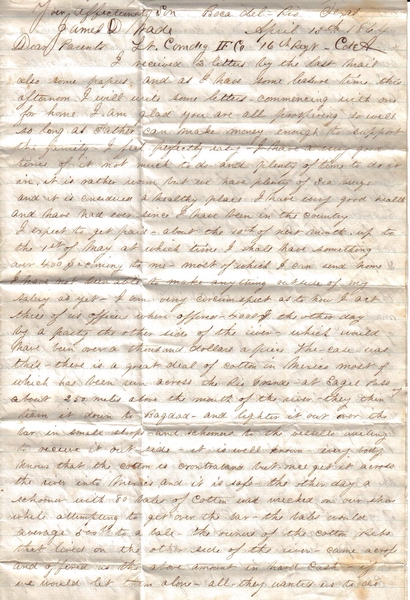 Your affectionate Son Boca del Rio Texas
James D Wade April 15th 1864
Dear Parents Lt. Comdg F Co 16th Regt - Cd A
I received 2 letters by the last mail
also some papers and as I have some leisure time this
afternoon I will write some letters - commencing with one
for home. I am glad you are all prospering so well
so long as Father can make money enough to support
the family I feel perfectly easy - I have a very good
time of it not much to do and plenty of time to do it
in, it is rather warm but we have plenty of Sea
and it is considered a healthy place I have very good health
and have had ever since I have been in the country
I expect to get paid - about the 10th of next month up to
the 1st of May at which time I shall have something
over 400 $ coming to me - most of which I can send home
I have not been able to make anything outside of my
salary as yet - I am very circumspect as to how I act
three of us officers where offered 4000 $ the other day
by a party the other side of the river - which would
have been over a thousand dollars apiece The case was
this there is a great deal of cotton in Mexico most of
which has been run across the Rio Grande - at Eagel Pass
about 250 miles above the mouth of the river - they then
team it down to Bagdad - and lighter it out over the
bar in small sloops - and schooners to the vessels waiting
to receive it out side - it is well known every body
knows that the cotton is contraband but once get it across
the river into Mexico and it is safe - the other day a
schooner with 80 bales of Cotton was wrecked on our shore
while attempting to get over the bar - the bales would
average 500 lb to a bale - the owners of the cotton
that lived on the other side of the river - came across
and offered us the above amount in hard Cash - if
we would let them alone - all they wanted us to do